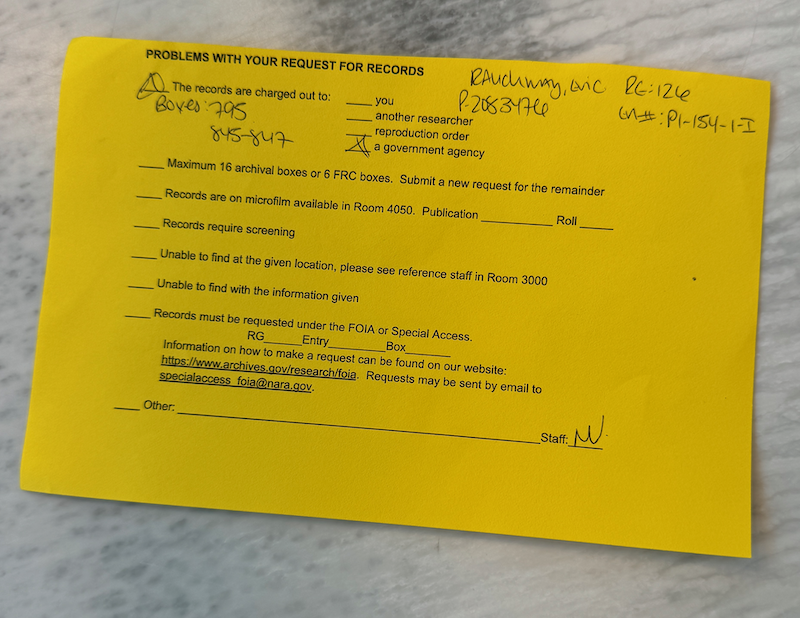 PROBLEMS WITH YOUR REQUEST FOR RECORDS
RAuchway, Eric RG:126
P-2083476
En#:PI-154-1-I
The records are charged out to: ___ you
Boxes:795
845-847
___ another researcher
___ reproduction order
X a government agency
___ Maximum 16 archival boxes or 6 FRC boxes. Submit a new request for the remainder
___ Records are on microfilm available in Room 4050. Publication ___________ Roll _____
___ Records require screening
___ Unable to find at the given location, please see reference staff in Room 3000
___ Unable to find with the information given
___ Records must be requested under the FOIA or Special Access.
RG______Entry_________Box_______
Information on how to make a request can be found on our website:
https://www.archives.gov/research/foia. Requests may be sent by email to
specialaccess_foia@nara.gov.
___ Other: ____________________Staff: